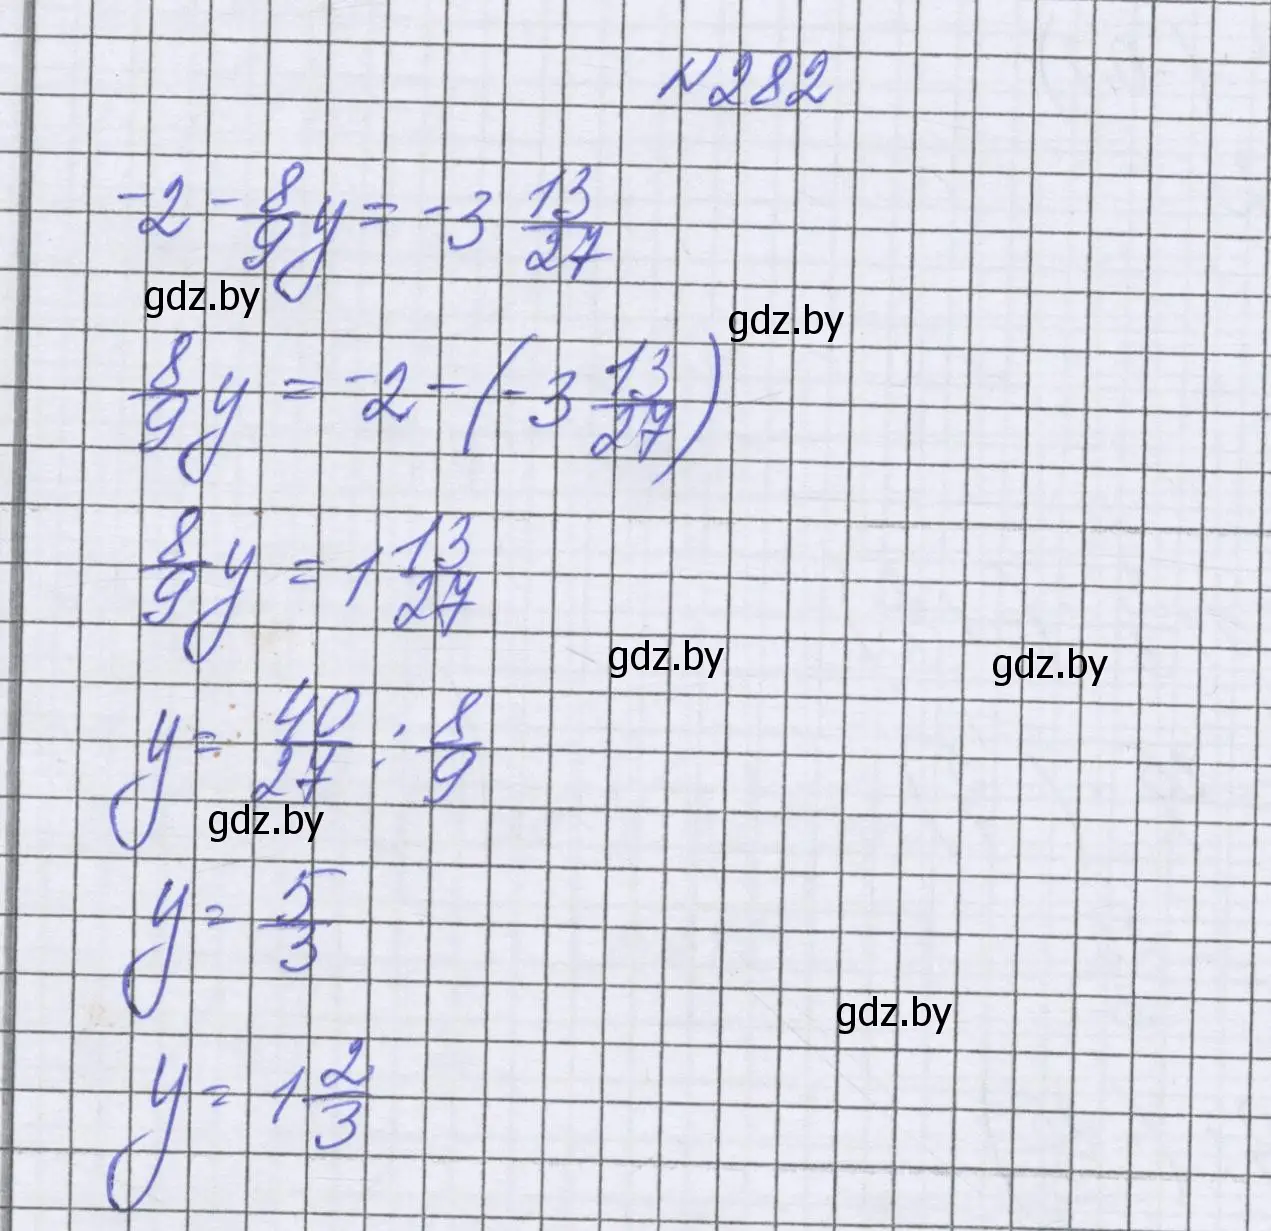 №282
-2 - 8/9 y = -3 13/27
gdz.by
gdz.by
8/9 y = -2 - (-3 13/27)
8/9 y = 1 13/27
gdz.by
gdz.by
y = 40/27 : 8/9
gdz.by
y = 5/3
gdz.by
y = 1 2/3